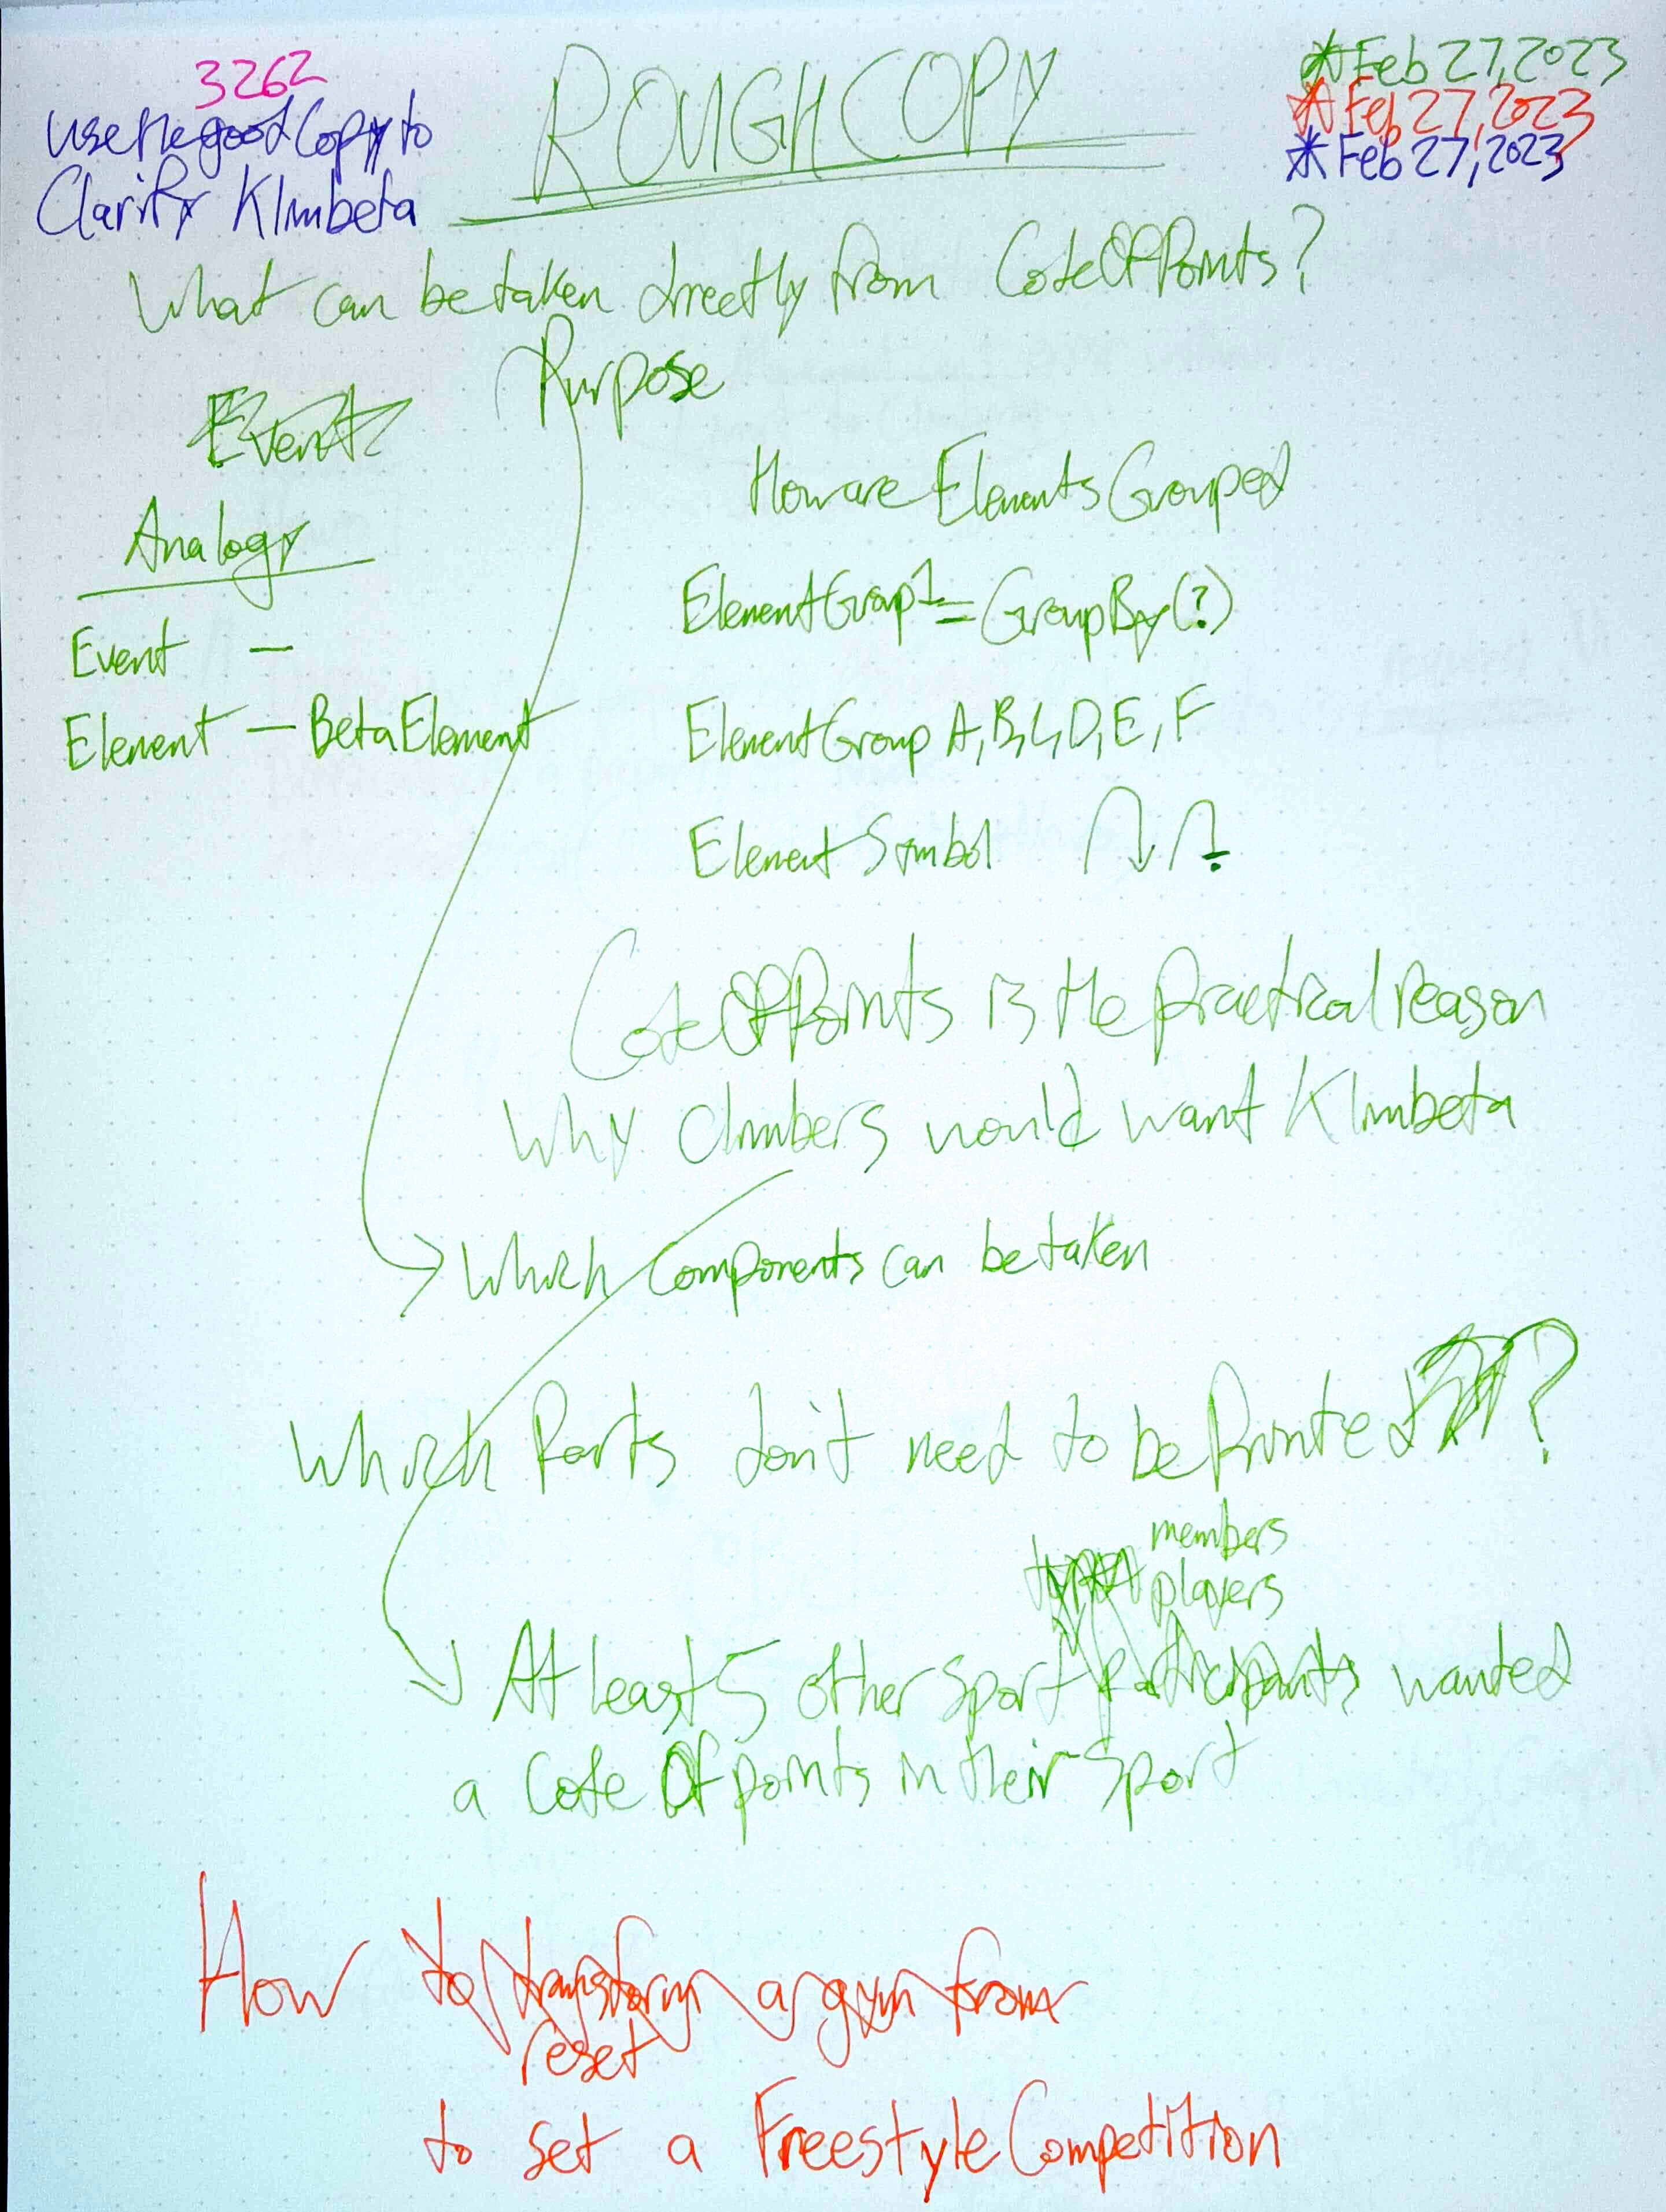 3262
Use the good Copy to
Clarify Klimbeta
ROUGH COPY
Feb 27, 2023
Feb 27, 2023
Feb 27, 2023
What can be taken directly from CodeOfPoints?
Purpose
Event
Analogy
Event –
Element – BetaElement
How are Elements Grouped
ElementGroup1 = GroupBy(?)
ElementGroup A, B, C, D, E, F
Element Symbol
CodeOfPoints is the practical reason
Why Climbers would want Klimbeta
→ Which Components can be taken
Which Parts don't need to be Printed ?
members
players
At least 5 other sport participants wanted
a Code Of points in their Sport
How to transform a gym from
reset
to set a Freestyle Competition